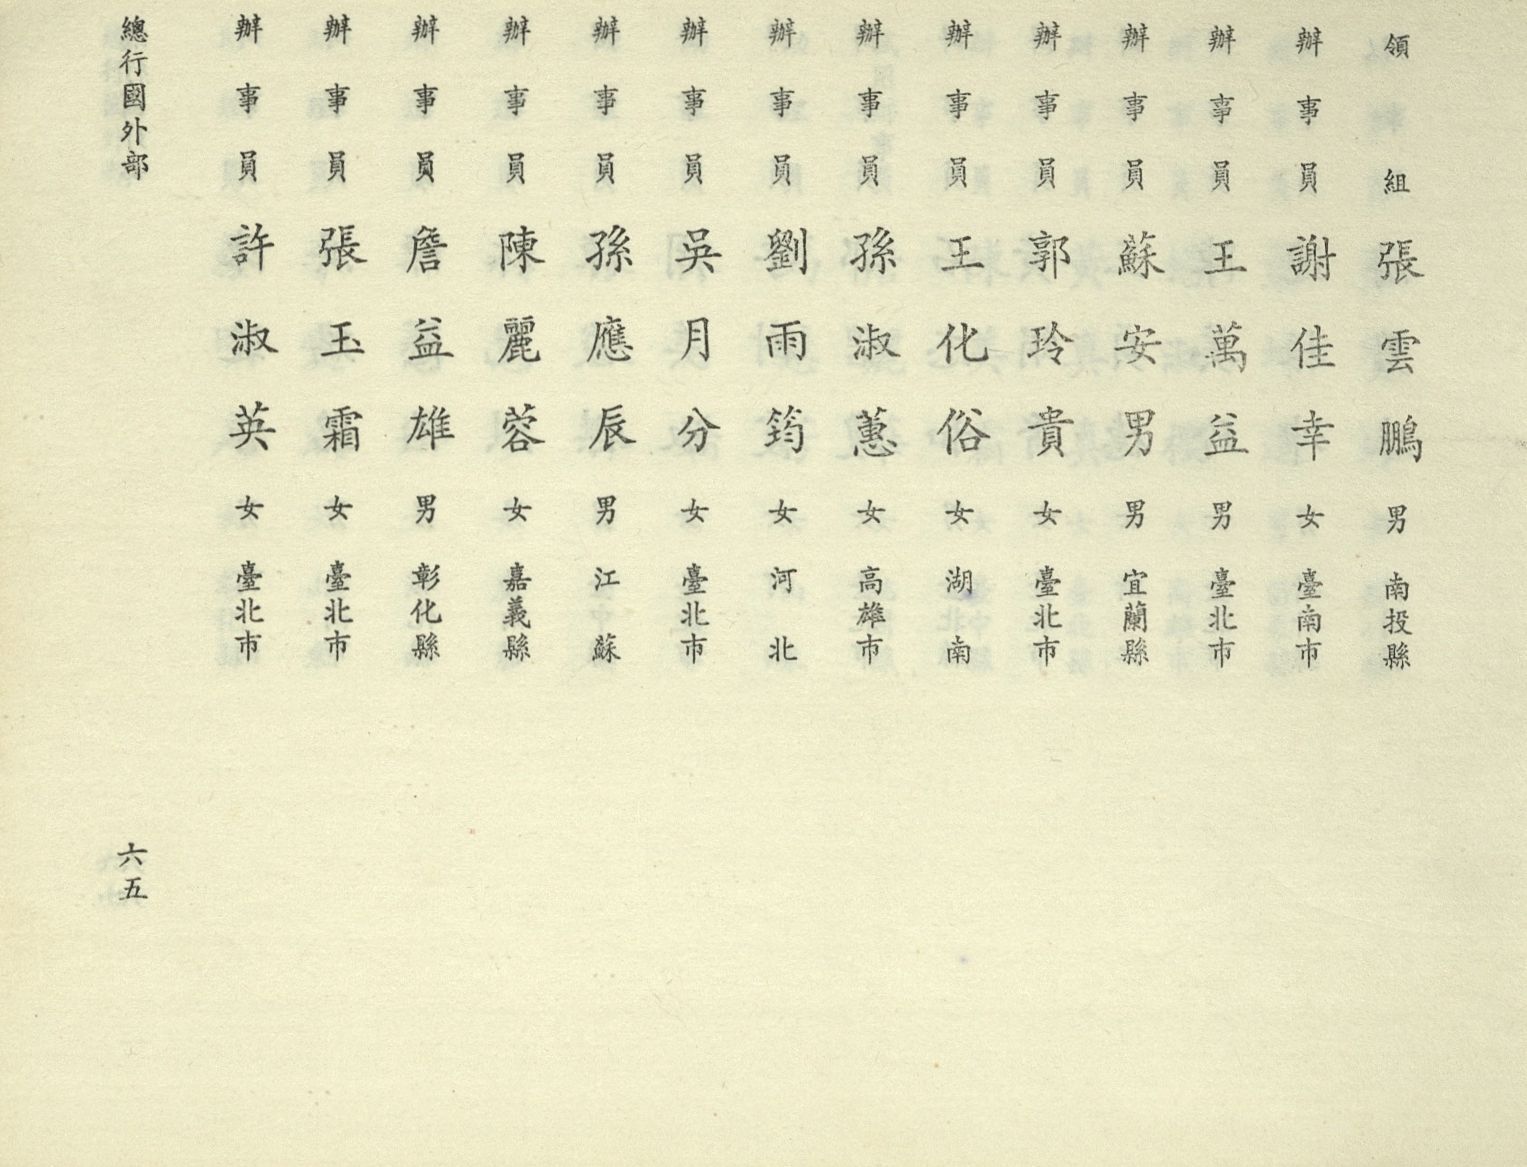 領組張雲鵬男南投縣
辦事員謝佳幸女臺南市
辦事員王萬益男臺北市
辦事員蘇安男男宜蘭縣
辦事員郭玲貴女臺北市
辦事員王化俗女湖南
辦事員孫淑蕙女高雄市
辦事員劉雨筠女河北
辦事員吳月分女臺北市
辦事員孫應辰男江蘇
辦事員陳麗蓉女嘉義縣
辦事員詹益雄男彰化縣
辦事員張玉霜女臺北市
辦事員許淑英女臺北市
總行國外部
六五